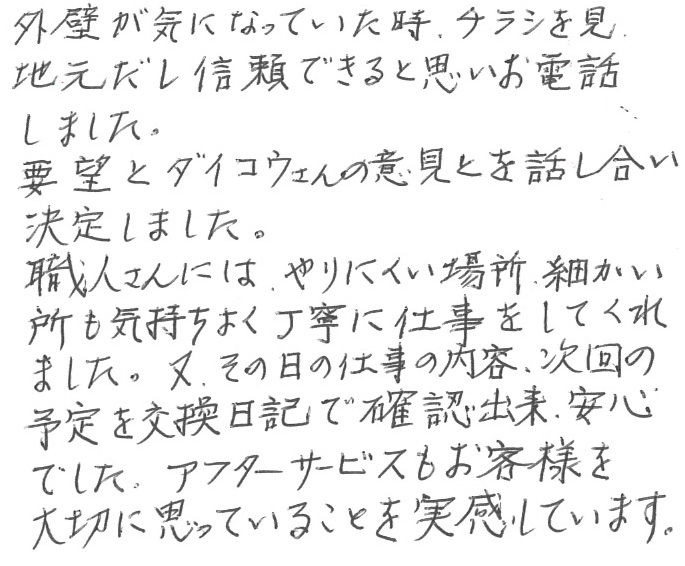 外壁が気になっていた時、チラシを見、
地元だし信頼できると思いお電話
しました。
要望とダイコウさんの意見とを話し合い
決定しました。
職人さんには、やりにくい場所、細かい
所も気持ちよく丁寧に仕事をしてくれ
ました。又、その日の仕事の内容、次回の
予定を交換日記で確認出来、安心
でした。アフターサービスもお客様を
大切に思っていることを実感しています。